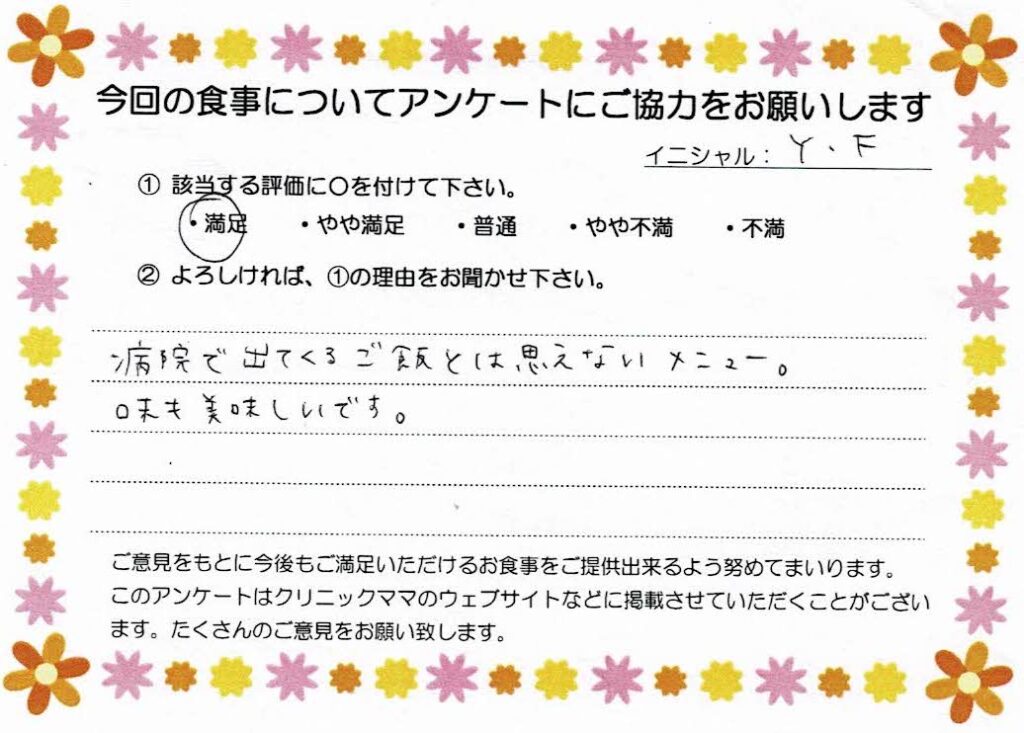 今回の食事についてアンケートにご協力をお願いします
イニシャル： Y・F
① 該当する評価に○を付けて下さい。
・満足 ・やや満足 ・普通 ・やや不満 ・不満
② よろしければ、①の理由をお聞かせ下さい。
病院で出てくるご飯とは思えないメニュー。
味も美味しいです。
ご意見をもとに今後もご満足いただけるお食事をご提供出来るよう努めてまいります。
このアンケートはクリニックママのウェブサイトなどに掲載させていただくことがござい
ます。たくさんのご意見をお願い致します。